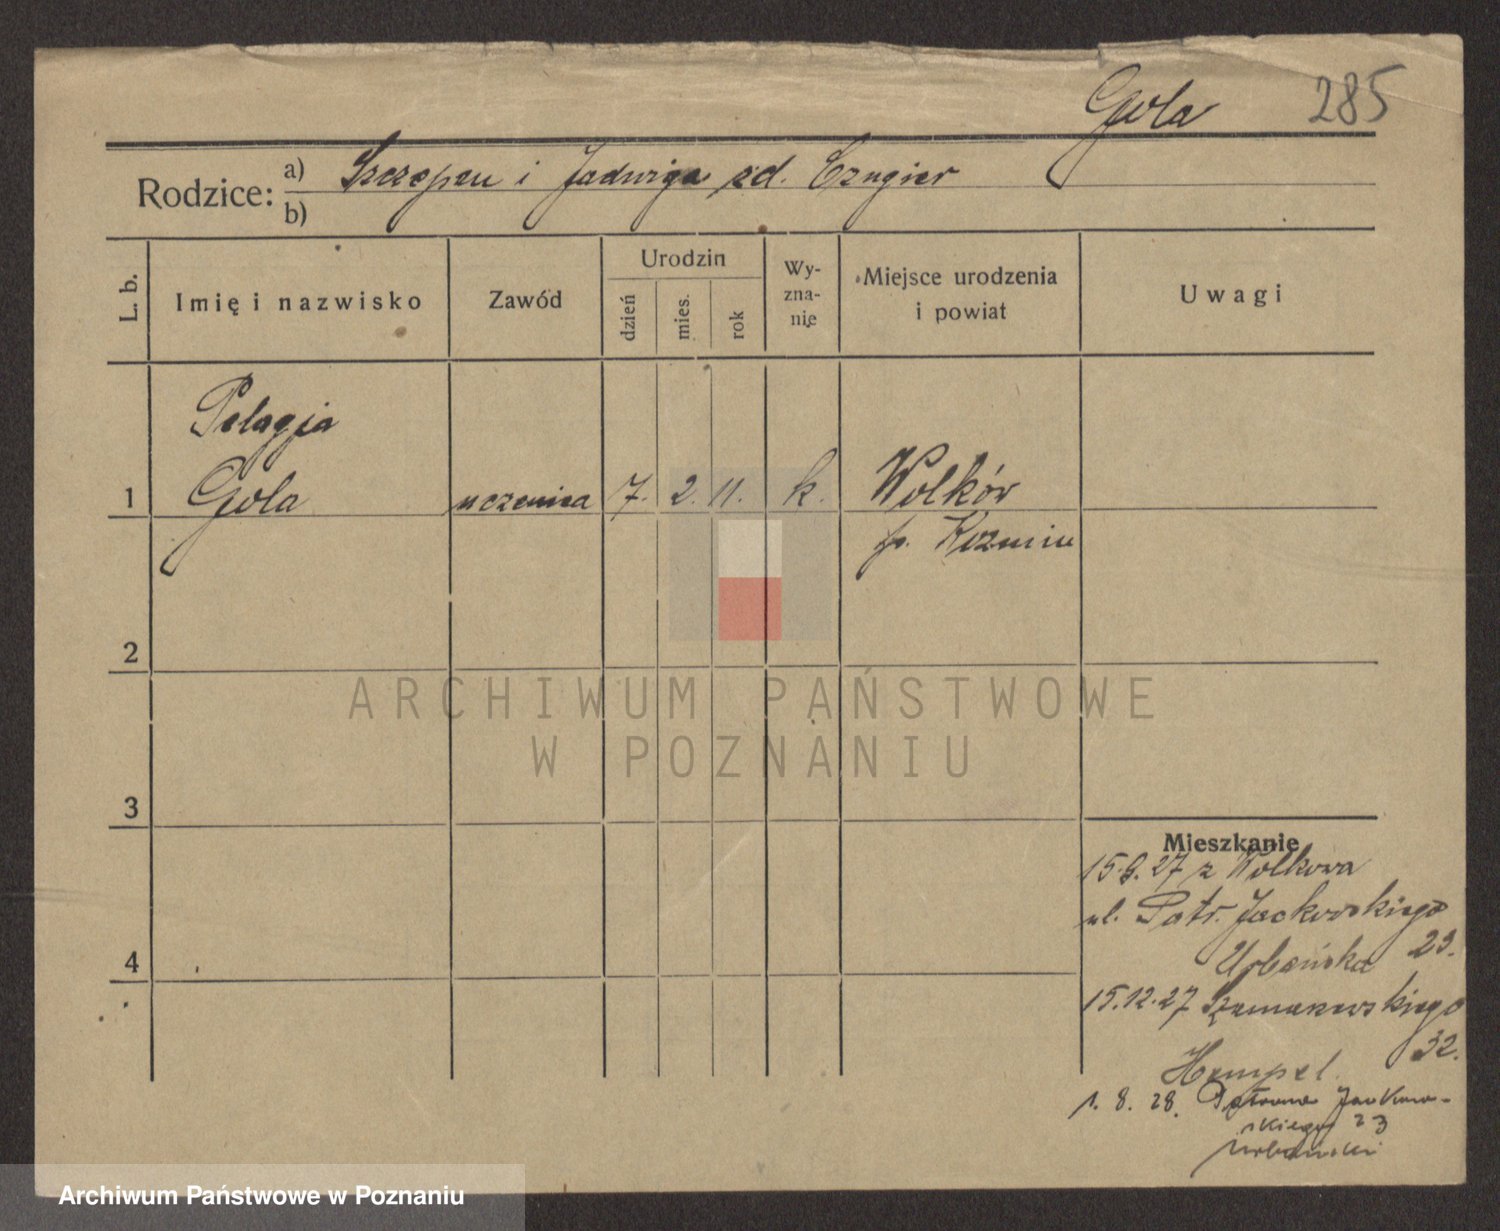 Gola 285
Rodzice: a) Szczepan i Jadwiga zd. Czugier
b)
L. b.
Imię i nazwisko
Zawód
Urodzin
dzień
mies.
rok
Wy-
zna-
nie
Miejsce urodzenia
i powiat
Uwagi
Pelagja
1 Gola uczenica 7. 2. 11. k. Wolków
p. Kozmin
2
ARCHIWUM PAŃSTWOWE
W POZNANIU
3
Mieszkanie
15.9.27 z Wolkowa
ul. Patr. Jackowskiego
Urbańska 23.
4
15.12.27 Szamarzewskiego
32.
Hempel
1. 8. 28. Patrona Jackow-
skiego 23
Urbański
Archiwum Państwowe w Poznaniu